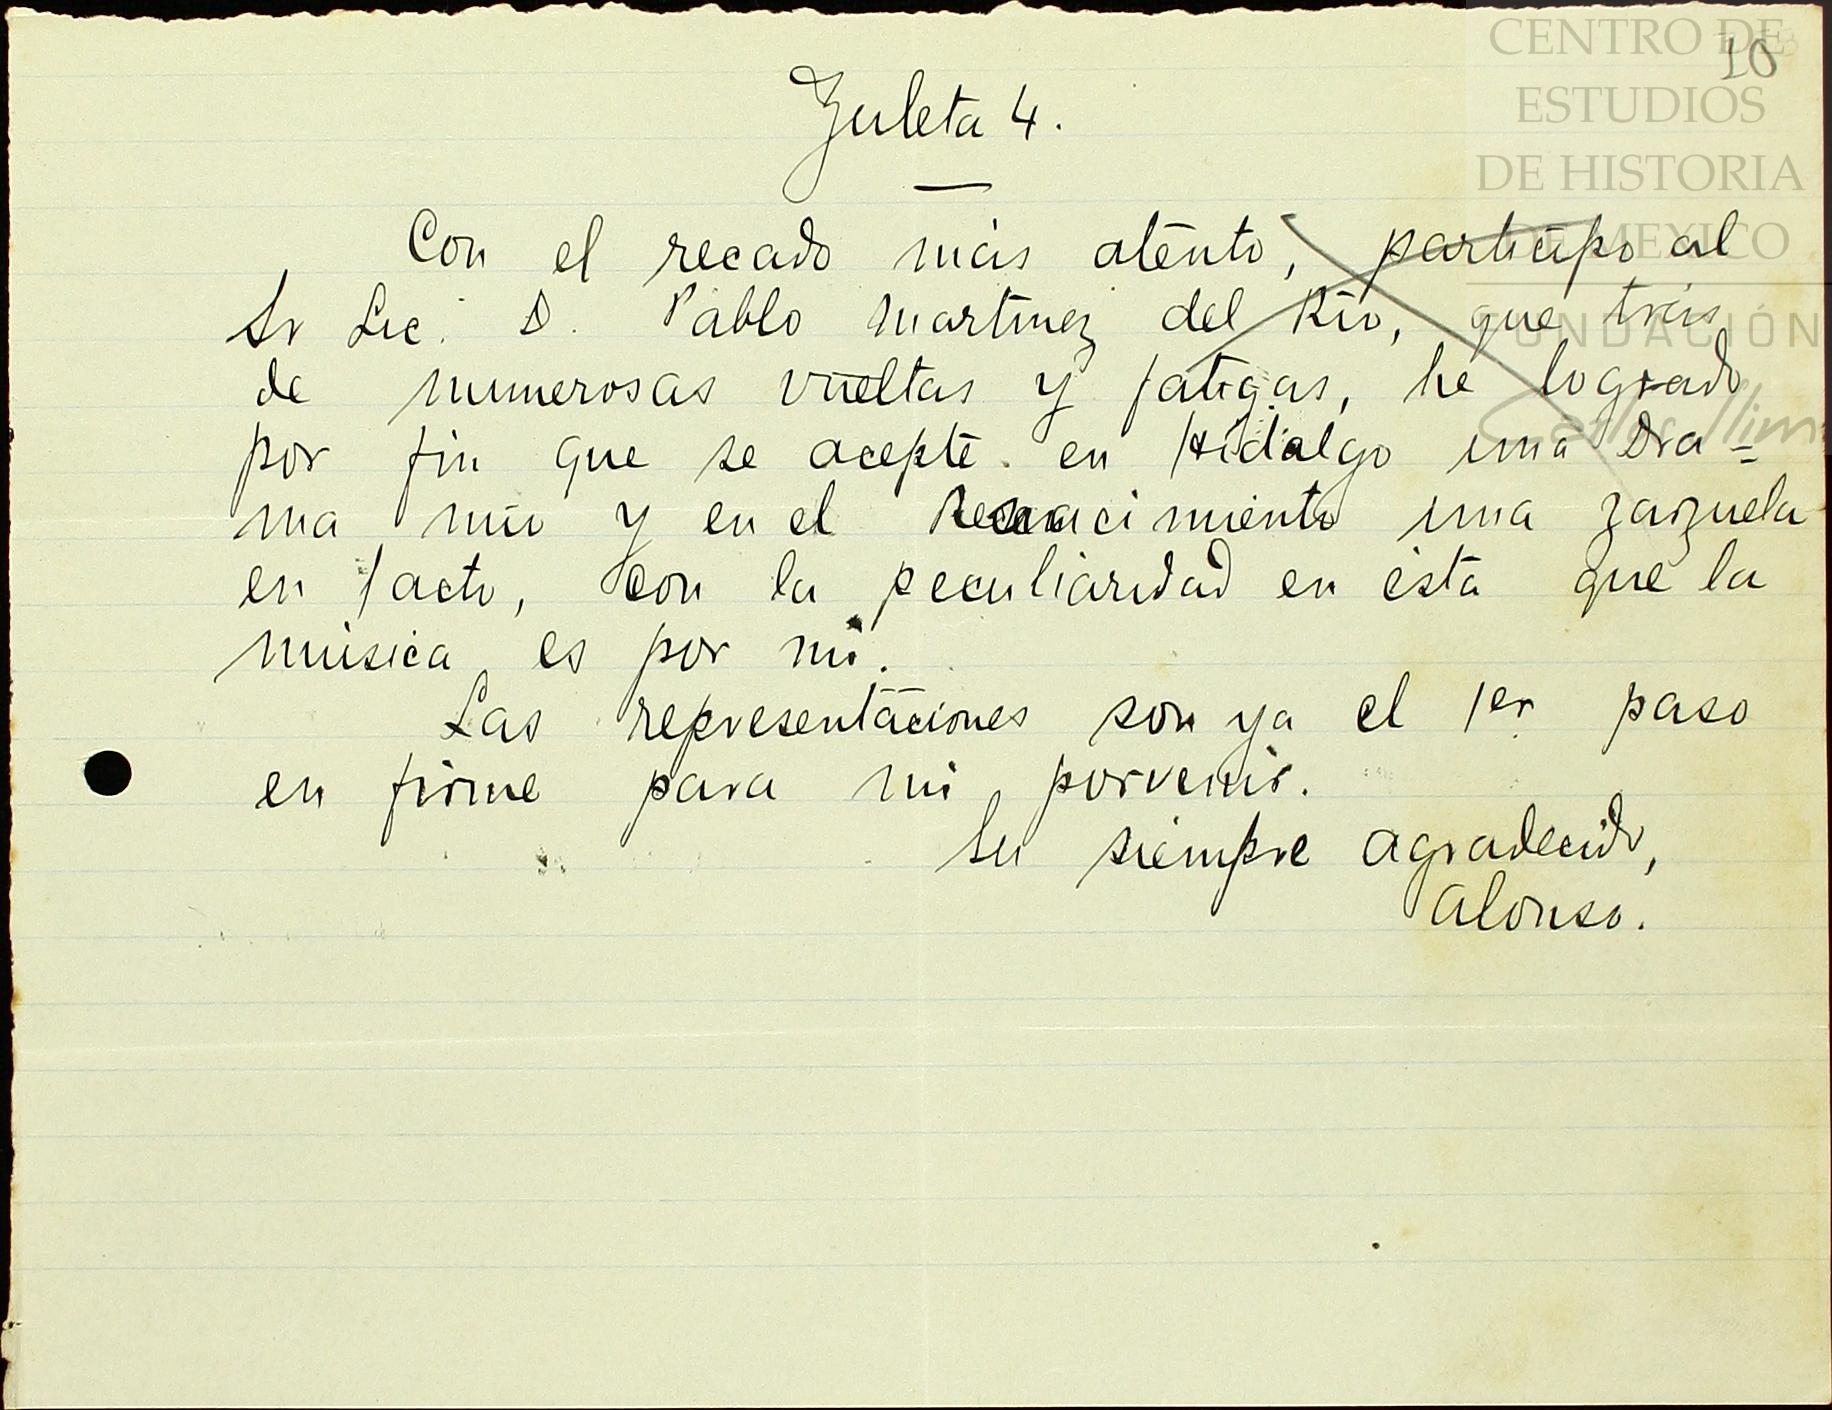 10
Zuleta 4.
Con el recado más atento, participo al
Sr Lic. D. Pablo Martinez del Rio, que trás
de numerosas vueltas y fatigas, he logrado
por fin que se acepte en Hidalgo una Dra-
ma mio y en el Renacimiento una zarzuela
en 1 acto, con la peculiaridad en ésta que la
música es por mi.
Las representaciones son ya el 1er paso
en firme para mi porvenir.
Su siempre agradecido,
Alonso.
CENTRO DE
ESTUDIOS
DE HISTORIA
DE MEXICO
FUNDACIÓN
Carlos Slim